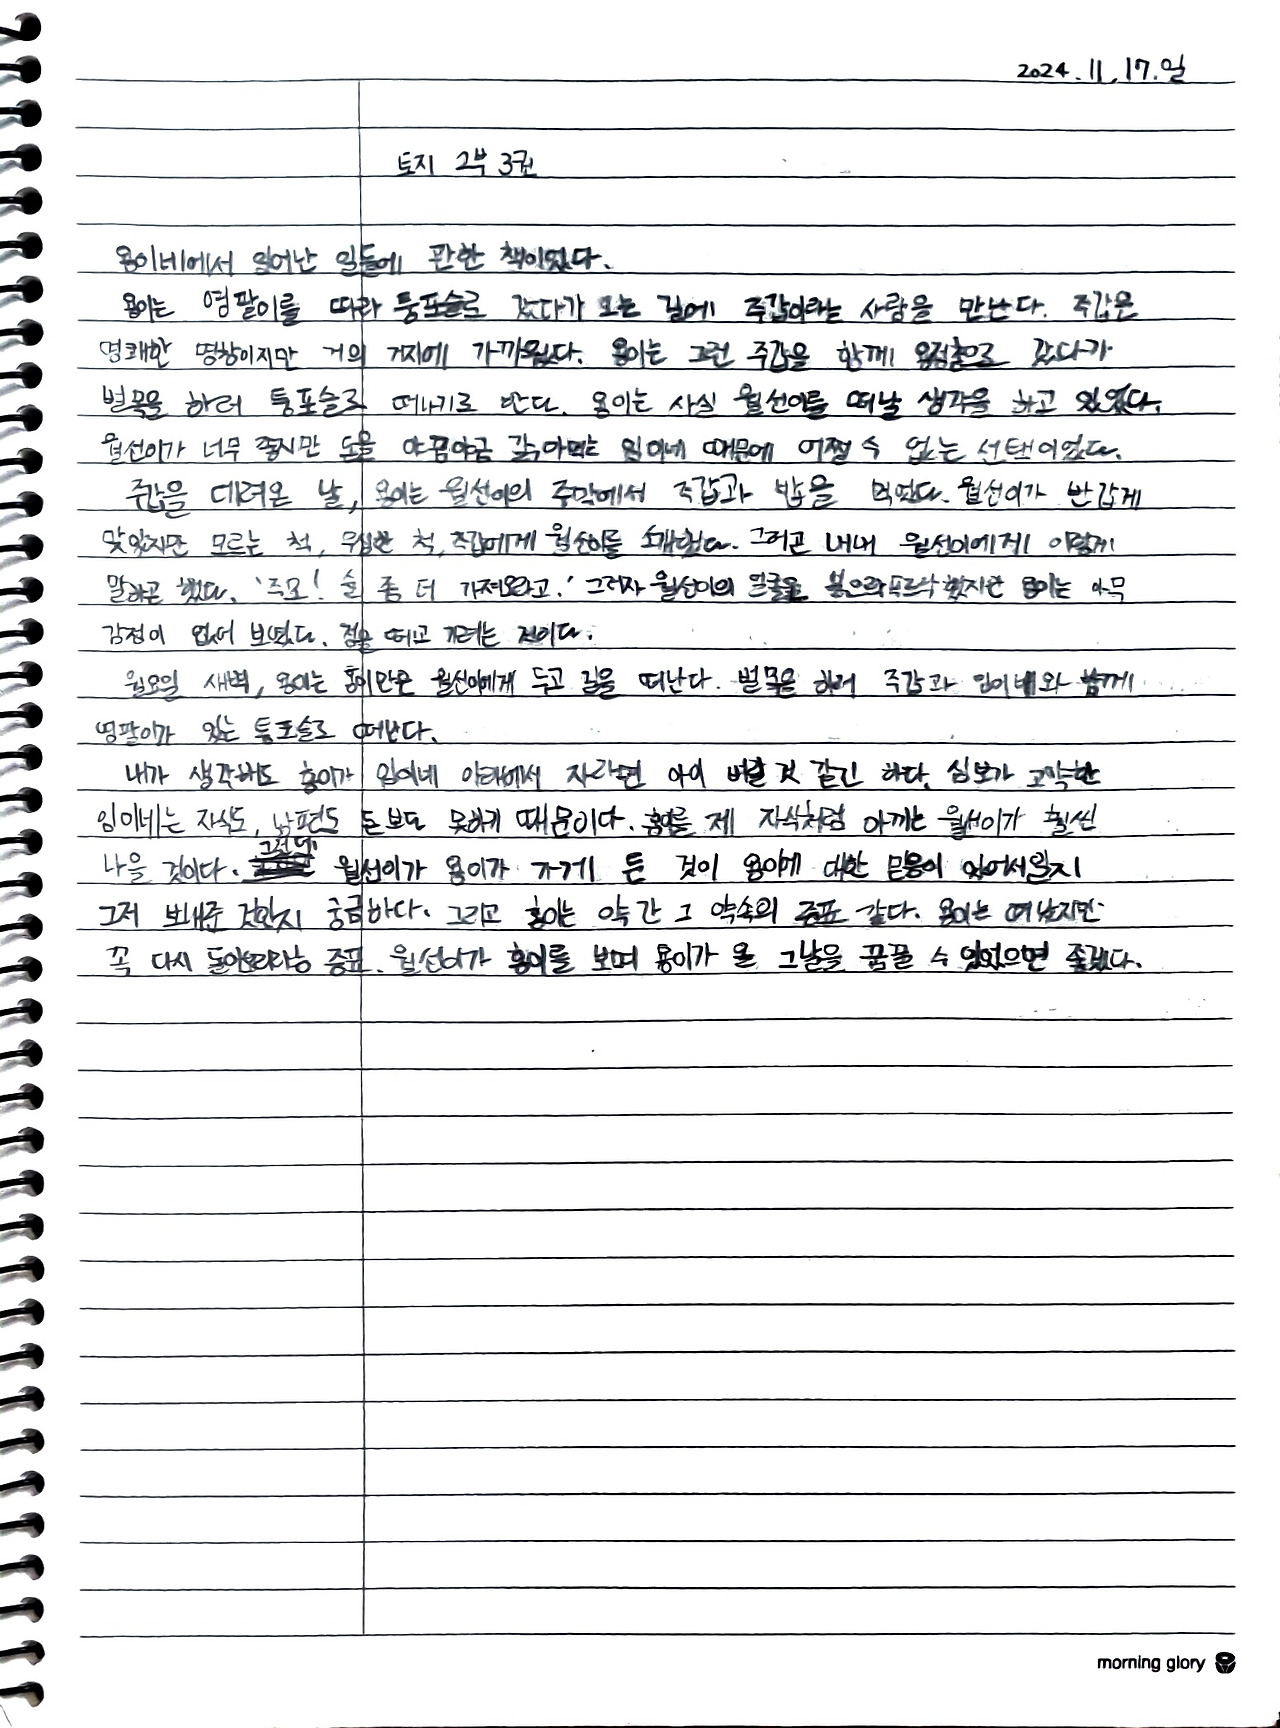 2024.11.17.일
토지 2부 3권
용이네에서 일어난 일들에 관한 책이었다.
용이는 영팔이를 따라 퉁포슬로 갔다가 오는 길에 주갑이라는 사람을 만난다. 주갑은
명쾌한 명창이지만 거의 거지에 가까웠다. 용이는 그런 주갑을 함께 용정촌으로 갔다가
벌목을 하러 퉁포슬로 떠나기로 한다. 용이는 사실 월선이를 떠날 생각을 하고 있었다.
월선이가 너무 좋지만 돈을 야금야금 갉아먹는 임이네 때문에 어쩔 수 없는 선택이었다.
주갑을 데려온 날, 용이는 월선이의 주막에서 주갑과 밥을 먹었다. 월선이가 반갑게
맞았지만 모르는 척, 무심한 척, 주갑에게 월선이를 소개했다. 그리곤 내내 월선이에게 이렇게
말하곤 했다. '주모! 술 좀 더 가져오라고.' 그러자 월선이의 얼굴을 붉으락푸르락 했지만 용이는 아무
감정이 없어 보였다. 정을 떼고 가려는 것이다.
월요일 새벽, 용이는 홍이만은 월선이에게 두고 길을 떠난다. 벌목을 하러 주갑과 임이네와 함께
영팔이가 있는 퉁포슬로 떠난다.
내가 생각해도 홍이가 임이네 아래에서 자라면 아이 버릴 것 같긴 하다. 심보가 고약한
임이네는 자식도, 남편도 돈보다 못하기 때문이다. 홍이를 제 자식처럼 아끼는 월선이가 훨씬
나을 것이다. 그런데 월선이가 용이가 가게 둔 것이 용이에 대한 믿음이 있어서일지
그저 보내준 것인지 궁금하다. 그리고 홍이는 약간 그 약속의 증표 같다. 용이는 떠났지만
꼭 다시 돌아오리라는 증표. 월선이가 홍이를 보며 용이가 올 그날을 꿈꿀 수 있었으면 좋겠다.
morning glory